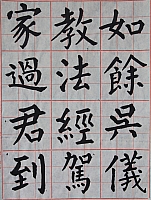 如餘吳儀
教法經駕
家過君到